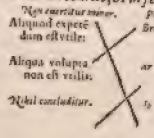 Non couertitur minor.
Aliquod expetẽ
dum est vtile:
Aliqua volupta
non est vtilis:
Nihil concluditur.